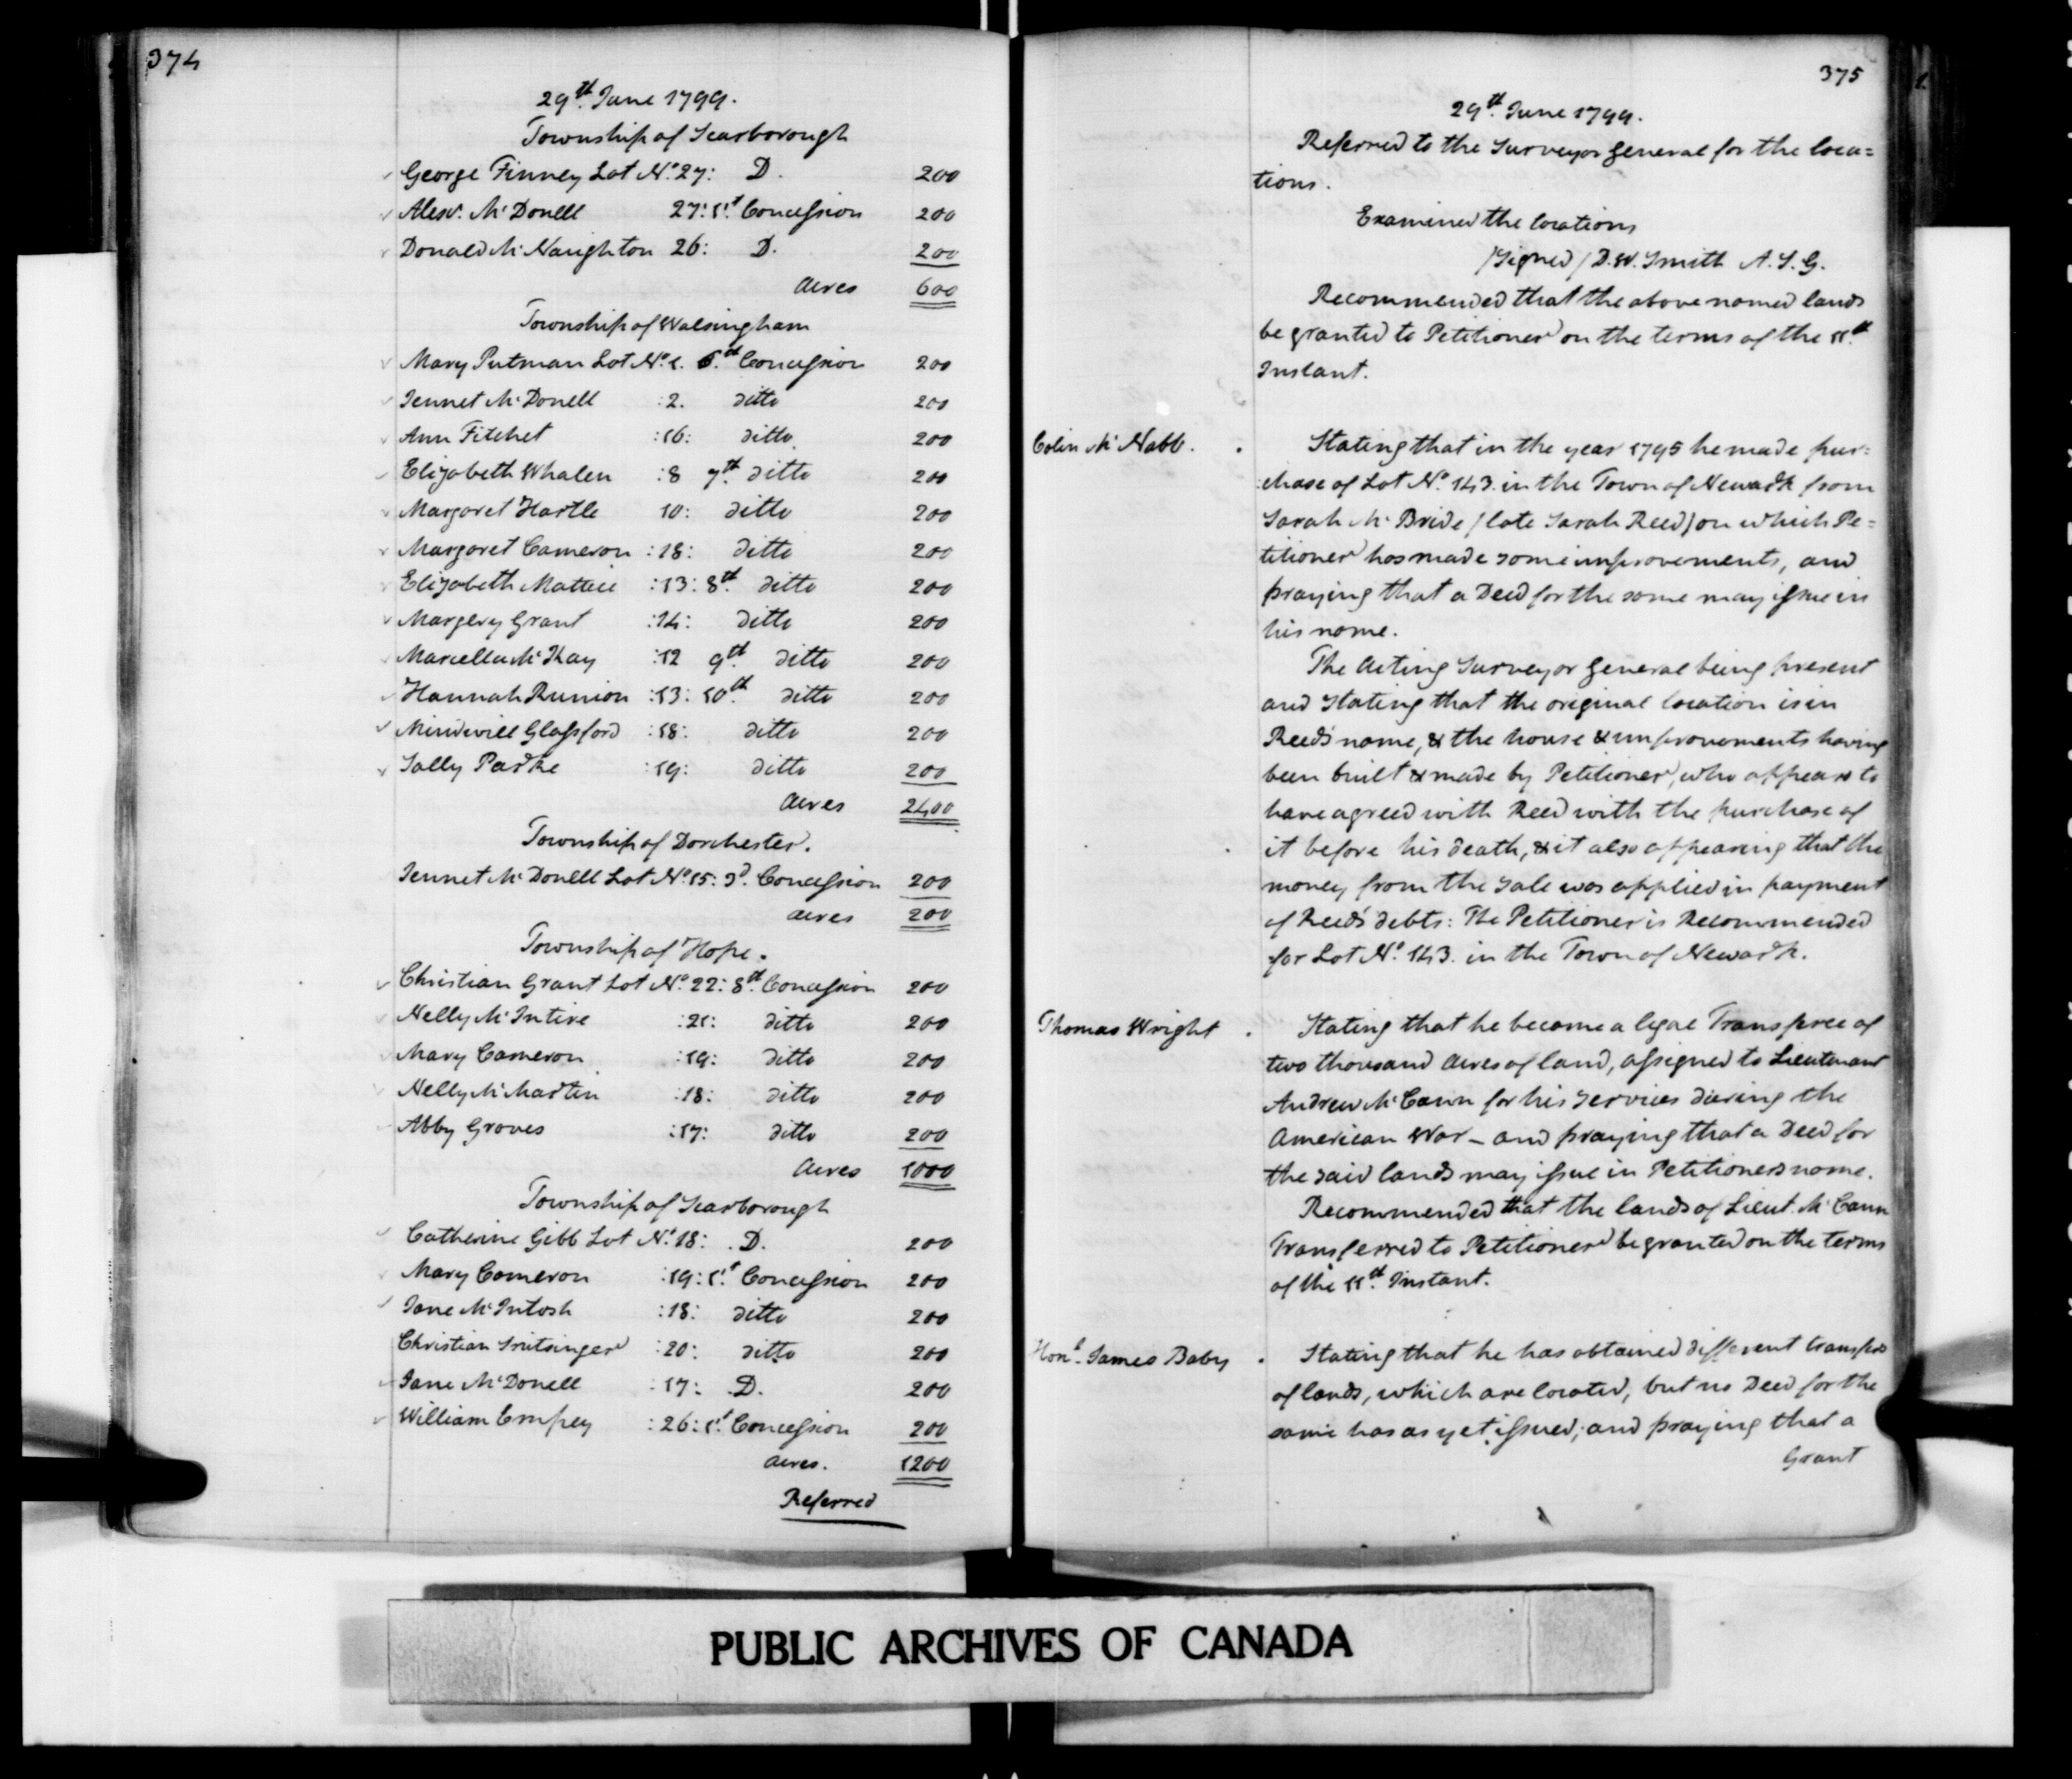 374
29th. June 1799.
Township of Scarborough
George Finney Lot No. 27: D. 200
Alexr. Mc Donell 27: 1st Concession 200
Donald Mc Naughton 26: D. 200
Acres 600
Township of Walsingham
Mary Putman Lot No. 1. 6th. Concession 200
Jennet Mc Donell :2. ditto 200
Ann Fitchet :16: ditto 200
Elizabeth Whalen :8 7th. ditto 200
Margaret Hartle 10: ditto 200
Margaret Cameron :18: ditto 200
Elizabeth Mattice :13: 8th. ditto 200
Margery Grant :14: ditto 200
Marcella Mc Kay :12 9th. ditto 200
Hannah Runion :13: 10th. ditto 200
Mindwill Glassford :18: ditto 200
Sally Parke :19: ditto 200
Acres 2400
Township of Dorchester.
Jennet Mc Donell Lot No. 15: 3d. Concession 200
Acres 200
Township of Hope.
Christian Grant Lot No. 22: 8th. Concession 200
Nelly Mc Intire :21: ditto 200
Mary Cameron :19: ditto 200
Nelly Mc Martin :18: ditto 200
Abby Groves :17: ditto 200
Acres 1000
Township of Scarborough
Catherine Gibb Lot No. 18: D. 200
Mary Cameron :19: 1st. Concession 200
Jane Mc Intosh :18: ditto 200
Christian Snitsinger :20: ditto 200
Jane Mc Donell :17: D. 200
William Empey :26: 1st. Concession 200
Acres. 1200
Referred
375
29th. June 1799.
Referred to the Surveyor General for the loca=
tions.
Examined the locations
/Signed/ D. W. Smith A. S. G.
Recommended that the above named lands
be granted to Petitioner on the terms of the 11th.
Instant.
Colin Mc Nabb. . Stating that in the year 1795 he made pur:
:chase of Lot No. 143. in the Town of Newark from
Sarah Mc Bride /late Sarah Reed/ on which Pe=
titioner has made some improvements, and
praying that a Deed for the same may issue in
his name.
The Acting Surveyor General being present
and Stating that the original location is in
Reed's name, & the house & improvements having
been built & made by Petitioner, who appears to
have agreed with Reed with the purchase of
it before his death, & it also appearing that the
money from the Sale was applied in payment
of Reed's debts: The Petitioner is Recommended
for Lot No. 143. in the Town of Newark.
Thomas Wright . Stating that he became a legal Transferee of
two thousand Acres of land, assigned to Lieutenant
Andrew Mc Cann for his Services during the
American War – and praying that a Deed for
the said lands may issue in Petitioners name.
Recommended that the lands of Lieut. Mc Cann
Transferred to Petitioner be granted on the terms
of the 11th. Instant.
Honl. James Baby . Stating that he has obtained different transfers
of lands, which are located, but no Deed for the
same has as yet issued; and praying that a
Grant
PUBLIC ARCHIVES OF CANADA